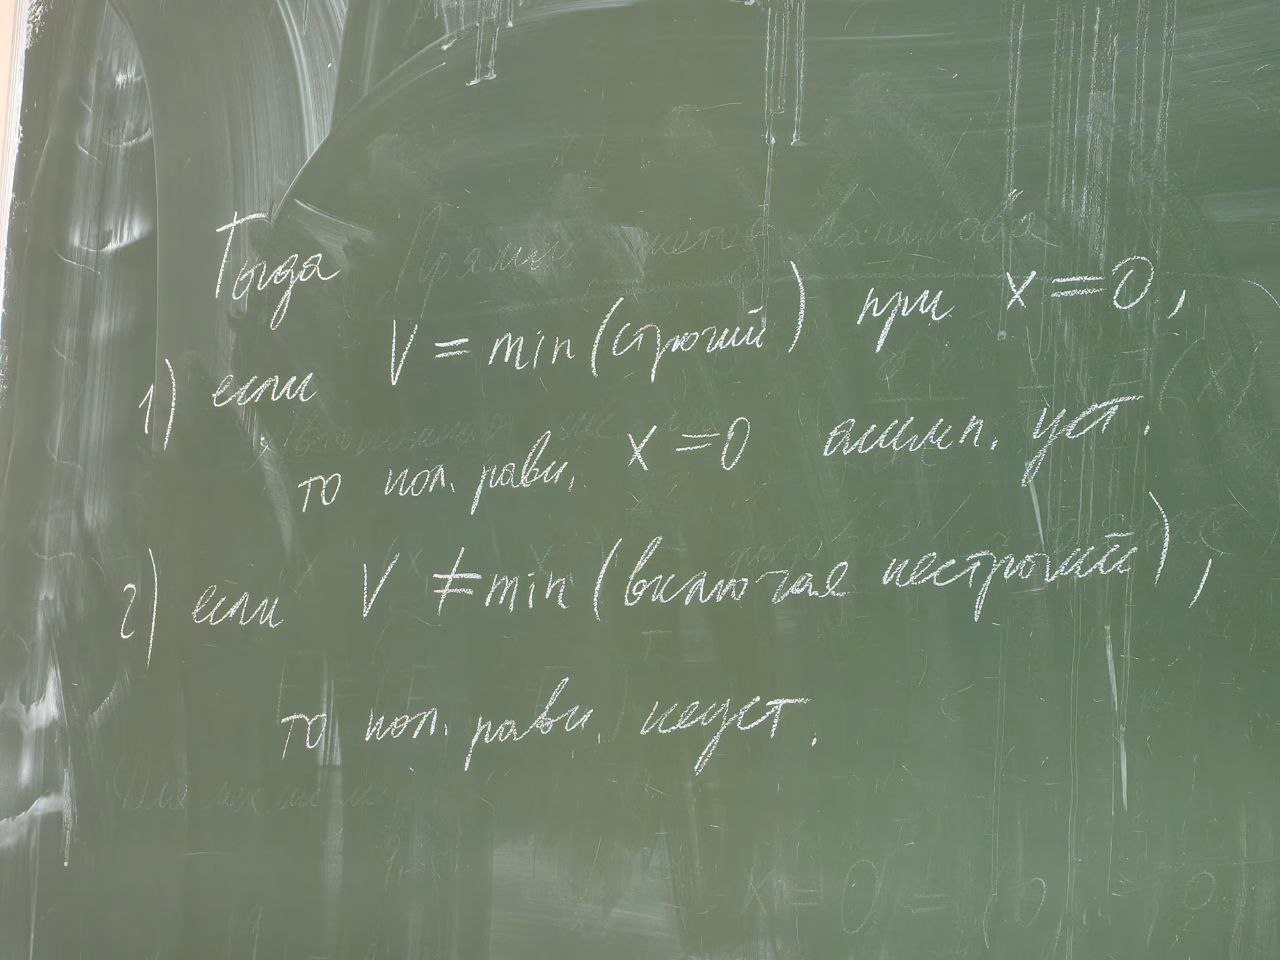 Тогда
1) если V = min (строгий) при x = 0,
то пол. равн. x = 0 асимп. уст.
2) если V ≠ min (включая нестрогий),
то пол. равн. неуст.